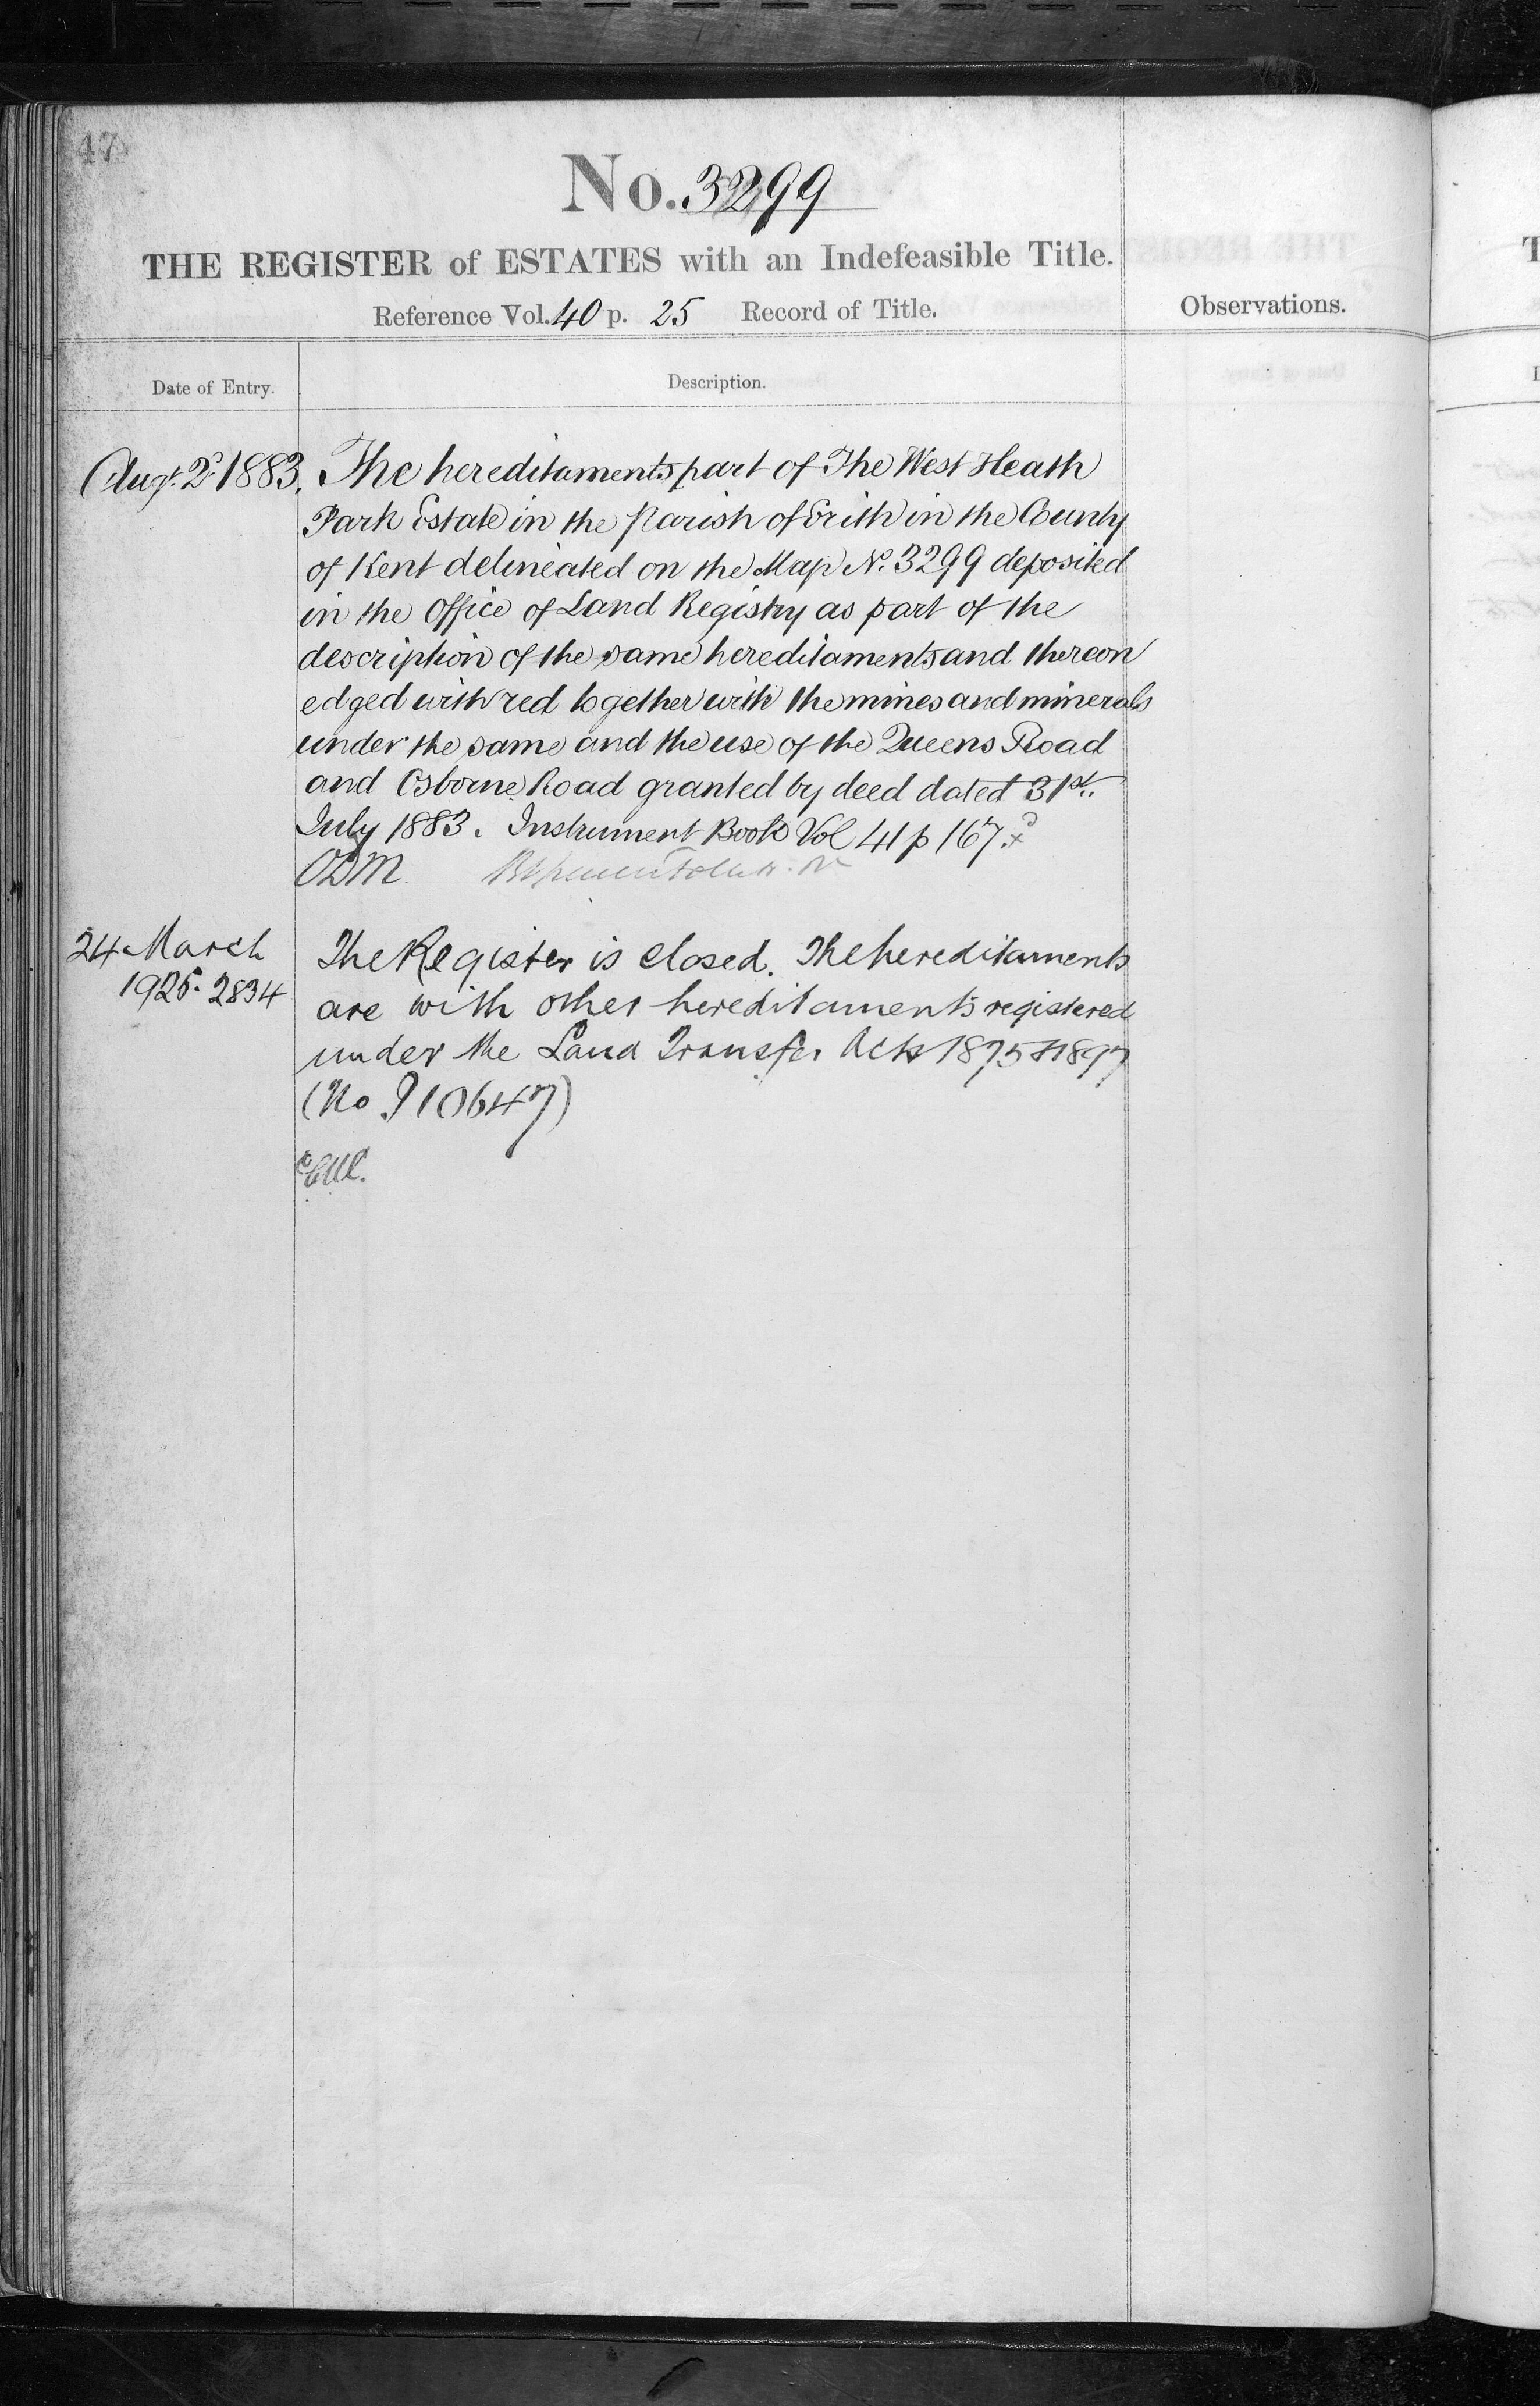 47
No. 3299
THE REGISTER of ESTATES with an Indefeasible Title.
Reference Vol. 40 p. 25 Record of Title.
Observations.
Date of Entry.
Description.
Augt. 2d 1883. The hereditaments part of The West Heath
Park Estate in the Parish of Erith in the County
of Kent delineated on the Map No. 3299 deposited
in the Office of Land Registry as part of the
description of the same hereditaments and thereon
edged with red together with the mines and minerals
under the same and the use of the Queens Road
and Osborne Road granted by deed dated 31st.
July 1883. Instrument Book Vol 41 p 167.
24 March
1925. 2834
The Register is closed. The hereditaments
are with other hereditaments registered
under the Land Transfer Acts 1875 & 1897
(No P10647)